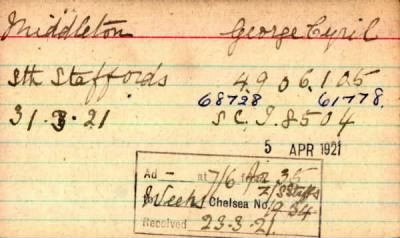 Middleton George Cyril
Sth Staffords 4.906.105
68728 61778.
31.3.21 S.C.I.8504
5 APR 1921
Ad - at 7/6 for 35
Weeks Z/S Staffs
Chelsea No. 34
Received 23.3.21